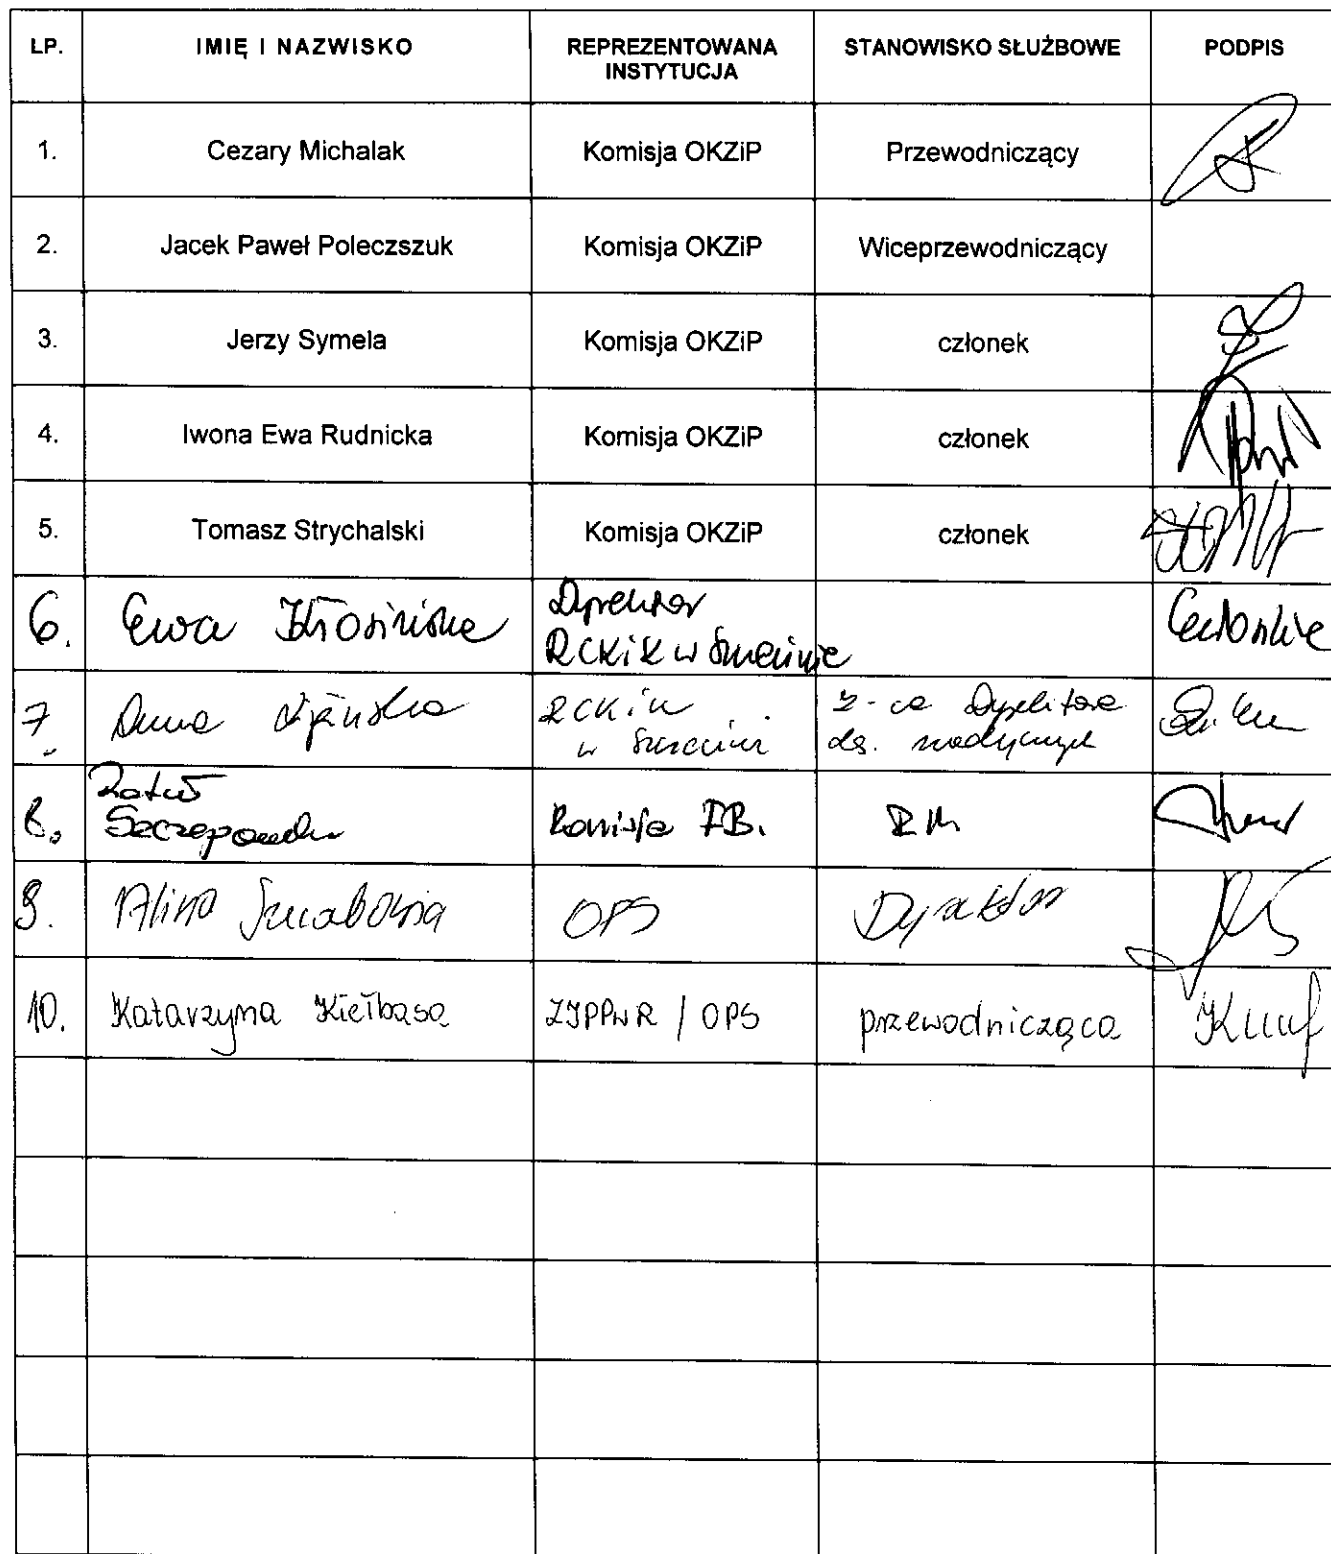 LP. IMIĘ I NAZWISKO REPREZENTOWANA INSTYTUCJA STANOWISKO SŁUŻBOWE PODPIS
1. Cezary Michalak Komisja OKZiP Przewodniczący
2. Jacek Paweł Poleczszuk Komisja OKZiP Wiceprzewodniczący
3. Jerzy Symela Komisja OKZiP członek
4. Iwona Ewa Rudnicka Komisja OKZiP członek
5. Tomasz Strychalski Komisja OKZiP członek
6. Ewa Kłosińska Dyrektor
RCKiK w Szczecinie
7. Anna RCKiK w Szczecinie z-ca Dyrektora
ds. medycznych
8. Komisja RM
9. Alina OPS Dyrektor
10. Katarzyna Kiełbasa ZIPPwR / OPS przewodnicząca